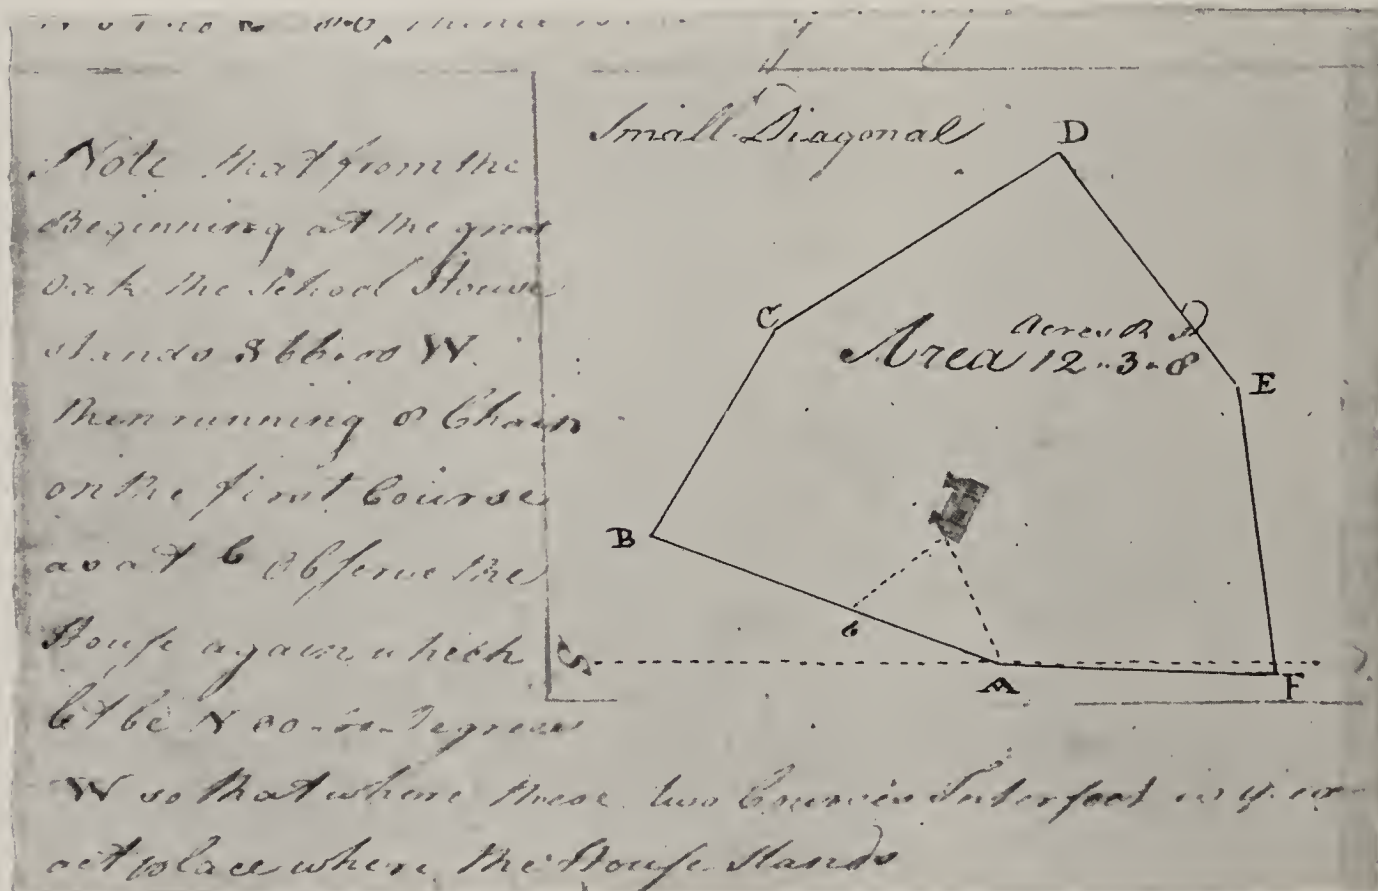 Small Diagonal
Note that from the
Beginning at the great
oak the School House
stands S 66:00 W
then running 8 Chain
on the first Course
as at b observe the
House again which
let be N Degrees
W so that where these two Courses Intersect is ye ex-
act place where the House Stands
D
C
Acres R P
Area 12..3..8
E
B
b
S
A
F